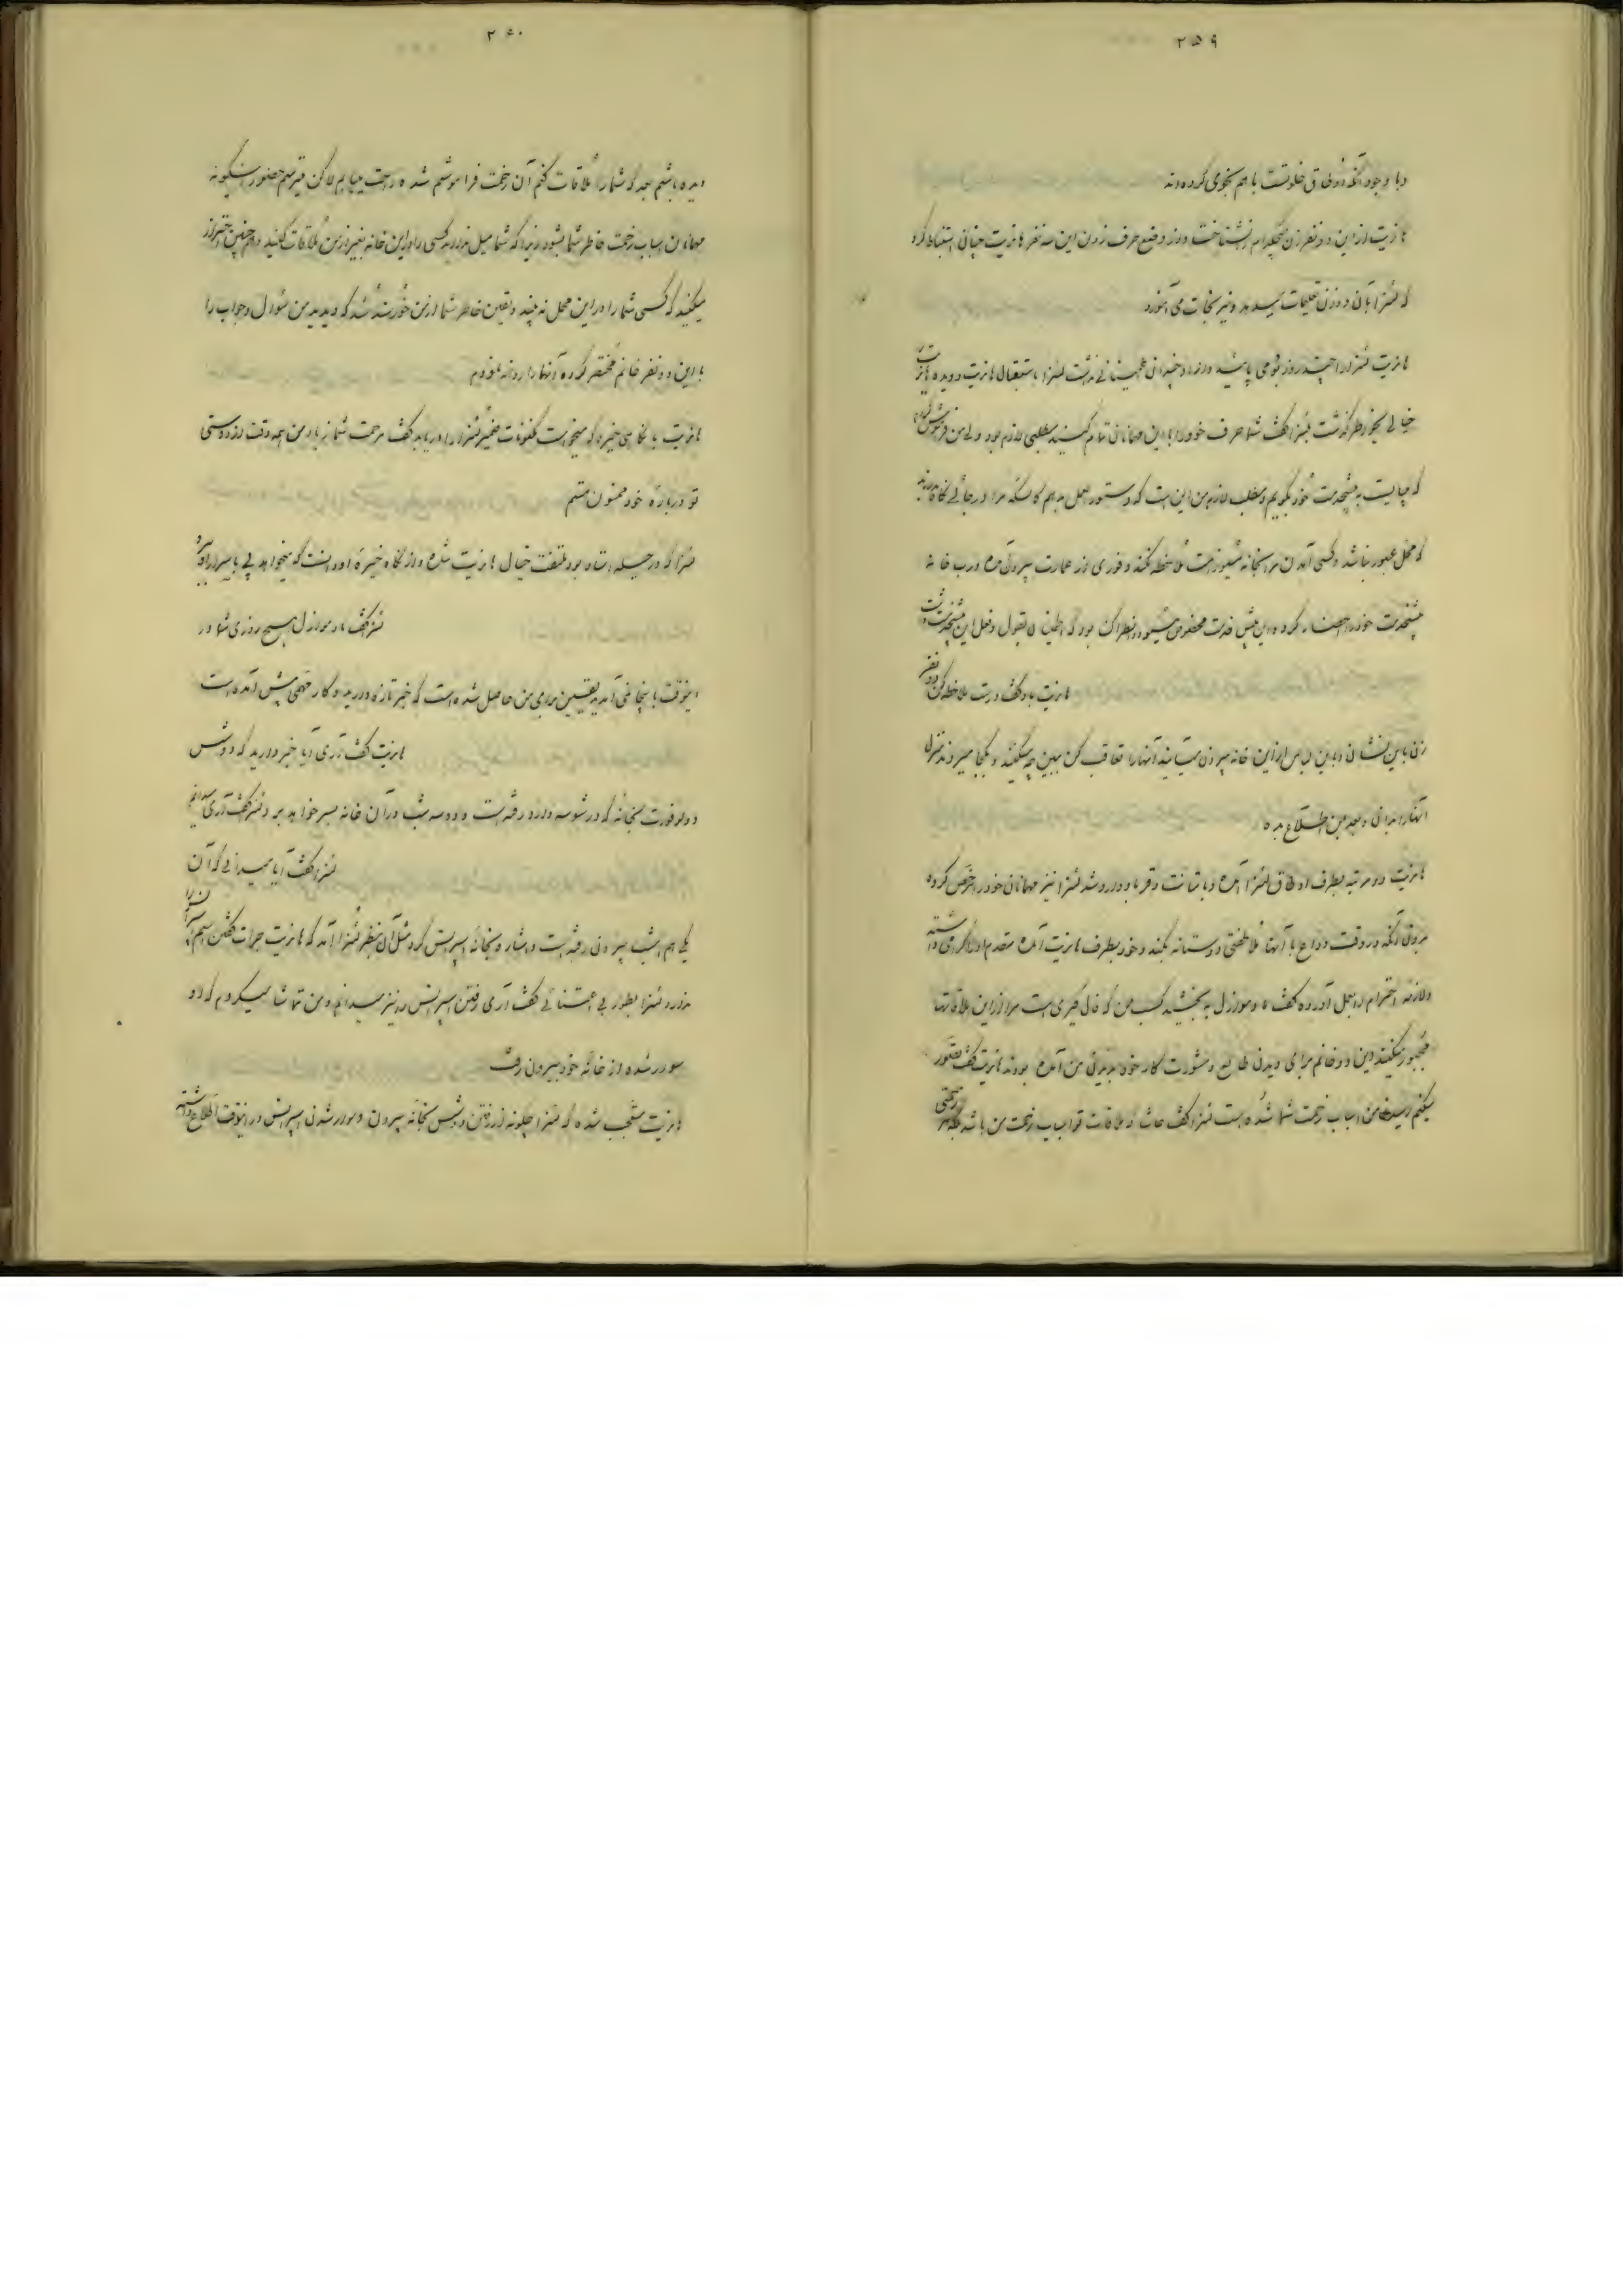 ۲۵۹
و با وجود آنکه اوطاق خلوتست با هم نجوی کرده‌اند
هانریت از این دو نفر زن هیچکدام را نشناخت و از وضع حرف زدن این سه نفر هانریت چنان استنباط کرد
که لئنرا بآن دو زن تعلیمات میدهد و نیز نجات می‌آموزد
هانریت لئنرا را چند روز بود می پائید و از او چندان اطمینانی نداشت لئنرا باستقبال هانریت دویده هانریت
خیالی بخواطر گذشت بلئنرا گفت شما حرف خود را با این مهمانان تمام کنید مطلبی لازم بود ولی من فراموش کرده‌ام
که بایست به پیشخدمت خود بگویم و مطلب لازم من این است که دستورالعمل بدهم کالسکه مرا در جائی نگاه دارند
که محل عبور نباشد و کسی آمدن مرا بخانه شما ملاحظه نکند و فوری از عمارت بیرون آمده درب خانه
پیشخدمت خود را احضار کرده این پیش خدمت مخصوص بود که اطمینان بقول و فعل این پیشخدمت داشت
هانریت باو گفت درست ملاحظه کن دو نفر
زن باین نشان و باین لباس از این خانه بیرون میآیند آنها را تعاقب کن ببین چه میکنند و بکجا میروند منزل
آنها را بدانی و بعد بمن اطلاع بده
هانریت دو مرتبه بطرف اوطاق لئنرا آمده و با متانت و وقار وارد شد لئنرا نیز مهمانان خود را مرخص کرده
بدون آنکه در وقت وداع با آنها ملاطفتی دوستانه بکند و خود بطرف هانریت آمده مقدم او را گرامی داشته
و لازمه احترام را بعمل آورده گفت مادموازل ببخشید کسب من که فال گیری است مرا از این ملاقاتها
مجبور میکند این دو خانم برای دیدن طالع و مشورت کار خود بدیدن من آمده بودند هانریت گفت تصور
میکنم رسیدن من اسباب زحمت شما شده است لئنرا گفت حاشا که ملاقات تو اسباب زحمت من باشد هر زحمتی
۲۶۰
دیده باشم بعد که شما را ملاقات کنم آن زحمت فراموشم شده راحت مییابم لاکن میترسم حضور اینگونه
مهمانان اسباب زحمت خاطر شما بشود زیرا که شما میل ندارید کسی را در این خانه بغیر از من ملاقات کنید و همچنین احتراز
میکنید که کسی شما را در این محل نه بیند و یقین خاطر شما از من خورسند شد که دیدید من سئوال و جواب را
با این دو نفر خانم مختصر کرده آنها را روانه نمودم
هانریت با نگاهی خیره که میخواست مکنونات ضمیر لئنرا را دریابد گفت مرحمت شما زیاد من همه وقت از دوستی
تو درباره خود ممنون هستم
لئنرا که در حیله استاد بود ملتفت خیال هانریت شده و از نگاه خیره او دانست که میخواهد پی باسرار او ببرد
لئنرا گفت مادموازل هیچ روزی شما در
اینوقت باینجا نمی‌آمدید یقین برای من حاصل شده است که خبر تازه دارید و کار مهمی پیش آمده است
هانریت گفت آری آیا خبر دارید که دوش
دولوفورت بخانه که در شوسه دارد رفته است و دو سه شب در آن خانه بسر خواهد برد لئنرا گفت آری میدانم
لئنرا گفت آیا میدانی که آن
یکی هم امشب بیرون رفته است و اشاره بخانه اسپرانس کرد مثل آن بنظر لئنرا آمد که هانریت جرات گفتن اسم اسپرانس را
ندارد لئنرا بطور بی اعتنائی گفت آری رفتن اسپرانس را نیز میدانم و من تماشا میکردم که او
سوار شده از خانه خود بیرون رفت
هانریت متعجب شده که لئنرا چگونه از رفتن دوش بخانه بیرون و سوار شدن اسپرانس در اینوقت اطلاع داشته